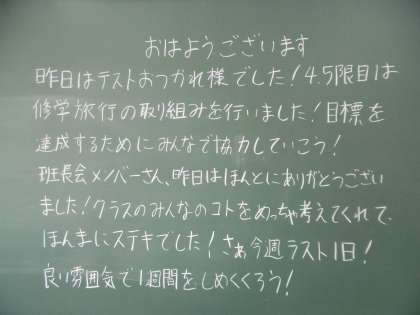 おはようございます
昨日はテストおつかれ様でした！4.5限目は
修学旅行の取り組みを行いました！目標を
達成するためにみんなで協力していこう！
班長会メンバーさん、昨日はほんとにありがとうござい
ました！クラスのみんなのコトをめっちゃ考えてくれて、
ほんまにステキでした！さぁ今週ラスト1日！
良い雰囲気で1週間をしめくくろう！